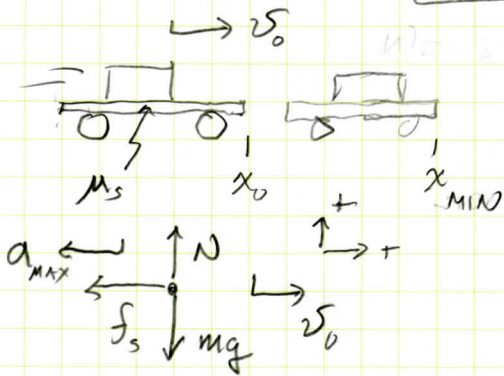 v₀
μₛ x₀ x MIN
a MAX N + +
fₛ mg v₀